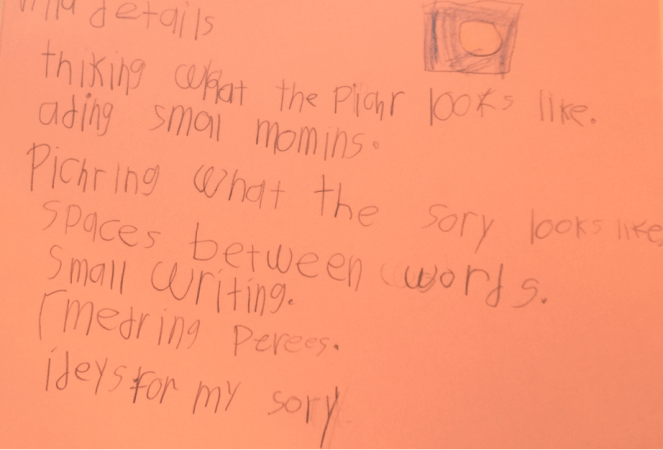 details
thiking what the Pichr looks like.
ading small momins.
Pichring what the sory looks like
spaces between words.
Small writing.
rmedring perees.
ideys for my sory